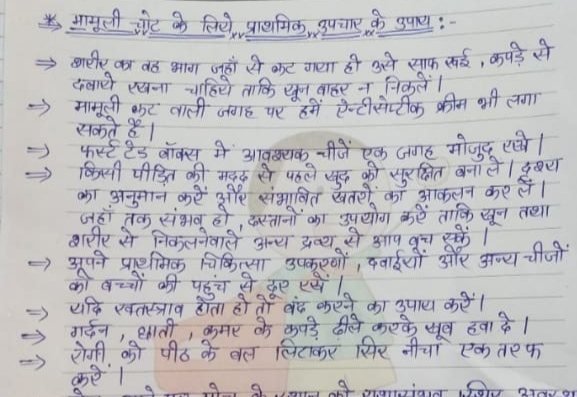 * मामूली चोट के लिये प्राथमिक उपचार के उपाय :-
⇒ शरीर का वह भाग जहाँ से कट गया हो उसे साफ रुई, कपड़े से
दबाये रखना चाहिये ताकि खून बाहर न निकलें।
⇒ मामूली कट वाली जगह पर हमें ऐन्टीसेप्टीक क्रीम भी लगा
सकते हैं।
⇒ फर्स्ट टेड बॉक्स में आवश्यक चीजें एक जगह मोजुद रखे।
⇒ किसी पीड़ित की मदद से पहले खुद को सुरक्षित बना ले। दृश्य
का अनुमान करें और संभावित खतरों का आकलन कर लें।
जहाँ तक संभव हो, दस्तानों का उपयोग करें ताकि खून तथा
शरीर से निकलनेवाले अन्य द्रव्य से आप बच सकें।
⇒ अपने प्राथमिक चिकित्सा उपकरणों, दवाईयों और अन्य चीजों
को बच्चों की पहुंच से दूर रखें।
⇒ यदि रक्तस्त्राव होता हो तो बंद करने का उपाय करें।
⇒ गर्दन, छाती, कमर के कपड़े ढीले करके खूब हवा दे।
⇒ रोगी को पीठ के बल लिटाकर सिर नीचा एक तरफ
करें।